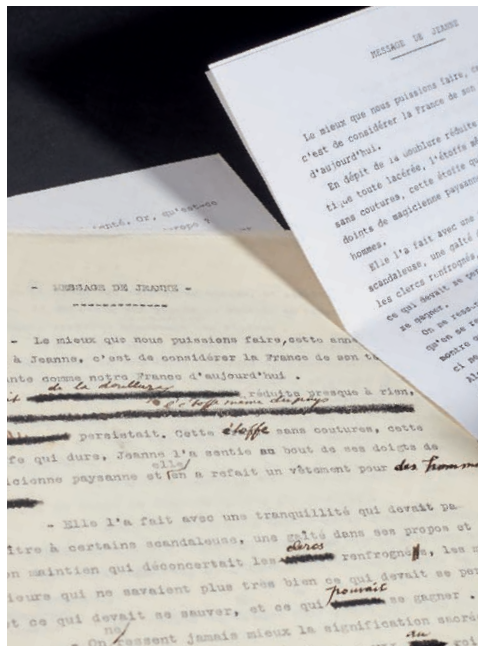 MESSAGE DE JEANNE
Le mieux que nous puissions faire, ce
c'est de considérer la France de son
d'aujourd'hui.
En dépit de la doublure réduite
tique toute lacérée, l'étoffe mê
sans coutures, cette étoffe qu
doigts de magicienne paysanne
hommes.
Elle l'a fait avec une
scandaleuse, une gaîté d
les clercs renfrognés,
ce qui devait se per
se gagner.
On ne ress
qu'on se re
montre
ci ne
Al
anté. Or, qu'est-ce
- MESSAGE DE JEANNE -
- Le mieux que nous puissions faire, cette anné
à Jeanne, c'est de considérer la France de son te
nte comme notre France d'aujourd'hui .
it de la doublure réduite presque à rien,
l'étoffe même du pays
persistait. Cette étoffe sans coutures, cette
fe qui dure, Jeanne l'a sentie au bout de ses doigts de
icienne paysanne et elle en a refait un vêtement pour des homme
- Elle l'a fait avec une tranquillité qui devait pa-
ître à certains scandaleuse, une gaîté dans ses propos et
on maintien qui déconcertait les clercs renfrognés, les m
ieurs qui ne savaient plus très bien ce qui devait se per
et ce qui devait se sauver, et ce qui pouvait se gagner .
- On ne ressent jamais mieux la signification sacré
du roi